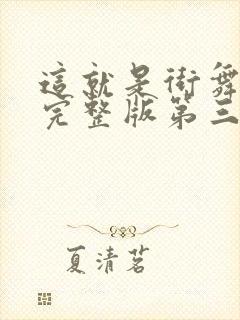 這就是街舞
完整版第三
夏清茗